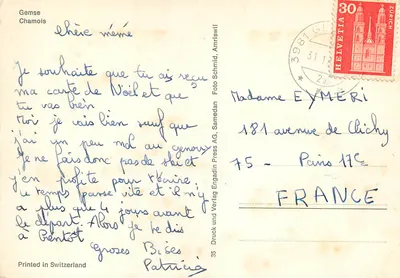 Gemse
Chamois
chère mémé
Je souhaite que tu ais reçu
ma carte de Noël et que
tu vas bien
Moi je vais bien sauf que
j'ai un peu mal au genou
Je ne fais donc pas de ski et
j'en profite pour t'écrire.
Le temps passe vite et il n'y
a plus que 4 jours avant
le départ. Alors je te dis
à Bientôt
Grosses Bises
Patricia
Printed in Switzerland
35 Druck und Verlag Engadin Press AG, Samedan Foto Schmid, Amriswil
30
HELVETIA
ZÜRICH
3981
31.1
Madame EYMERI
181 avenue de Clichy
75 - Paris 17e
FRANCE